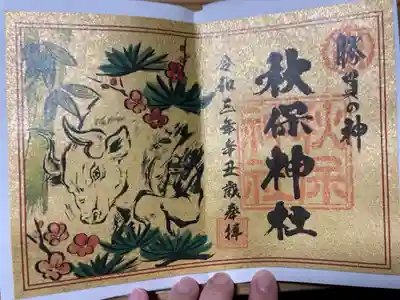 勝負の神
秋保神社
秋保
神社
令和三年辛丑歳奉拝